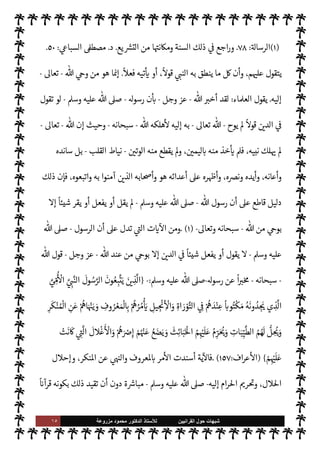 (١)الرسالة: ٧٨. وراجع في ذلك السنة ومكانتها من التشريع. د. مصطفى السباعي: ٥٠.
يتقول عليهم, وأن كل ما ينطق به النبي قولاً, أو يأتيه فعلاً. إنما هو من وحي الله - تعالى -
إليه. يقول العلماء: لقد أخبر الله - عز وجل - بأن رسوله - صلى الله عليه وسلم - لو تقول
في الدين قولاً لم يوح - الله تعالى - به إليه لأهلكه الله - سبحانه - وحيث إن الله - تعالى -
لم يهلك نبيه, فلم يأخذ منه باليمين, ولم يقطع منه الوتين - نياط القلب - بل سانده
وأعانه, وأيده ونصره, وأظهره على أعدائه هو وأصحابه الذين آمنوا به واتبعوه, فإن ذلك
دليل قاطع على أن رسول الله - صلى الله عليه وسلم - لم يقل أو يفعل أو يقر شيئاً إلا
بوحي من الله - سبحانه وتعالى- (١) .ومن الآيات التي تدل على أن الرسول - صلى الله
عليه وسلم - لا يقول أو يفعل شيئاً في الدين إلا بوحي من عند الله - عز وجل - قول الله
- سبحانه - مخبراً عن رسوله-صلى الله عليه وسلم:- {الَّذِينَ يَتَّبِعُونَ الرَّسُولَ النَّبِيَّ الْأُمِّيَّ
الَّذِي يَجِدُونَهُ مَكْتُوباً عِنْدَهُمْ فِي التَّوْرَاةِ وَالْإِنْجِيلِ يَأْمُرُهُمْ بِالْمَعْرُوفِ وَيَنْهَاهُمْ عَنِ الْمُنْكَرِ
وَيُحِلُّ لَهُمُ الطَّيِّبَاتِ وَيُحَرِّمُ عَلَيْهِمُ الْخَبَائِثَ وَيَضَعُ عَنْهُمْ إِصْرَهُمْ وَالْأَغْلالَ الَّتِي كَانَتْ
عَلَيْهِمْ} (الأعراف:١٥٧) .فالآية أسندت الأمر بالمعروف والنهي عن المنكر, وإحلال
الحلال, وتحريم الحرام إليه- صلى الله عليه وسلم - مباشرة دون أن تقيد ذلك بكونه قرآناً
شبهات حول القرآنيين للأستاذ الدكتور محمود مزروعة ٢٥